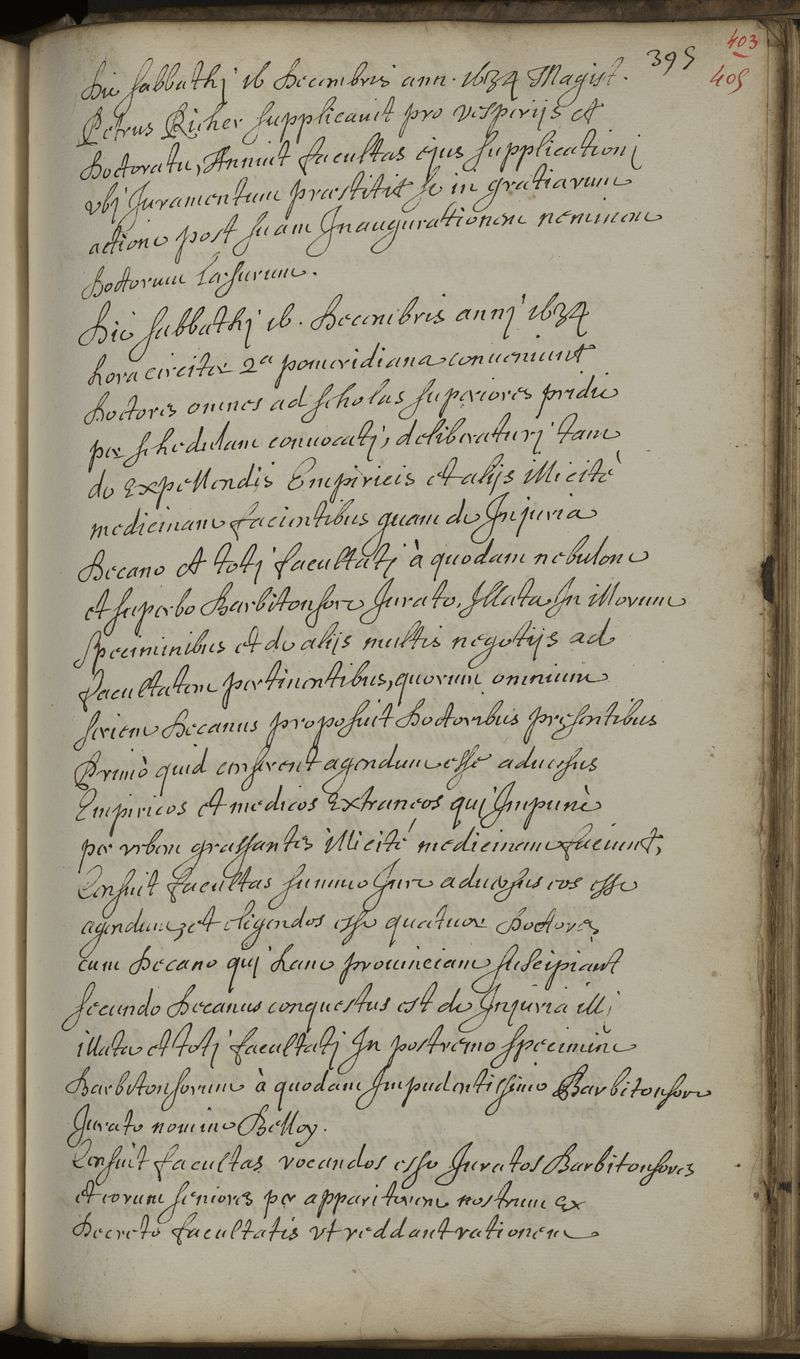 395
403
405
Die sabbathj 16 Decembris ann. 1634 Magist.
Petrus Richer supplicauit pro vesperijs et
Doctoratu, Annuit facultas ejus supplicationj
vbj Juramentum præstitit se in gratiarum
actione post suam Inaugurationem neminem
Doctorum læsurum.
Die sabbathj 16. Decembris annj 1634
hora circiter 2a pomeridiana conueniunt
Doctores omnes ad scholas superiores pridie
per schedulam conuocatj, deliberaturj tam
de Expellendis Empiricis et alijs illicitè
medicinam facientibus quam de Injuria
Decano et totj facultatj à quodam nebulone
et superbo Barbitonsore Jurato, Illata In illorum
speciminibus et de alijs multis negotijs ad
facultatem pertinentibus, quorum omnium
seriem Decanus proposuit Doctoribus præsentibus
Primò quid censerent agendum esse aduersus
Empiricos et medicos Extraneos quj Impunè
per vrbem grassantes illicitè medicinam faciunt,
Censuit facultas summo Jure aduersus eos esse
agendum, et eligendos esse quatuor Doctores
cum Decano quj hanc prouinciam suscipiant
secundo Decanus conquestus est de Injuria illj
illata et totj facultatj In postremo specimine
Barbitonsorum à quodam Impudentissimo Barbitonsore
Jurato nomine Belloy.
Censuit facultas vocandos esse Juratos Barbitonsores
et eorum seniores per apparitorem nostrum ex
Decreto facultatis vt reddant rationem